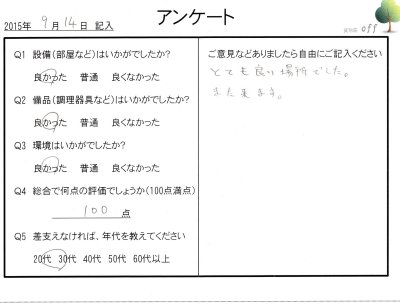 アンケート
2015年 9月 14日 記入
off
Q1 設備(部屋など)はいかがでしたか?
良かった 普通 良くなかった
Q2 備品(調理器具など)はいかがでしたか?
良かった 普通 良くなかった
Q3 環境はいかがでしたか?
良かった 普通 良くなかった
Q4 総合で何点の評価でしょうか(100点満点)
100 点
Q5 差支えなければ、年代を教えてください
20代 30代 40代 50代 60代以上
ご意見などありましたら自由にご記入ください
とても良い場所でした。
また来ます。